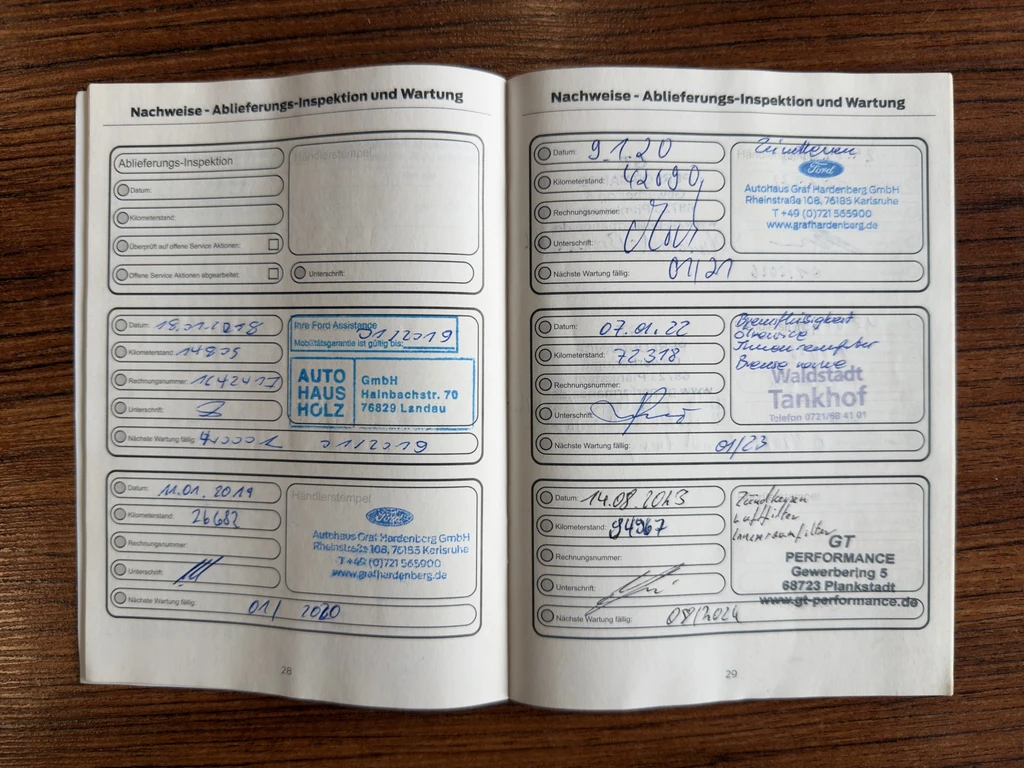 Nachweise - Ablieferungs-Inspektion und Wartung
Ablieferungs-Inspektion
Händlerstempel
Datum:
Kilometerstand:
Überprüft auf offene Service Aktionen:
Offene Service Aktionen abgearbeitet:
Unterschrift:
Datum: 18.01.2018
Kilometerstand: 14805
Rechnungsnummer:
Unterschrift:
Nächste Wartung fällig: 01/2019
Ihre Ford Assistance
Mobilitätsgarantie ist gültig bis: 01/2019
AUTO
HAUS
HOLZ
GmbH
Hainbachstr. 70
76829 Landau
Datum: 11.01.2019
Kilometerstand: 26682
Rechnungsnummer:
Unterschrift:
Nächste Wartung fällig: 01/2020
Händlerstempel
Ford
Autohaus Graf Hardenberg GmbH
Rheinstraße 108, 76185 Karlsruhe
T +49 (0)721 565900
www.grafhardenberg.de
28
Nachweise - Ablieferungs-Inspektion und Wartung
Datum: 9.1.20
Kilometerstand: 42090
Rechnungsnummer:
Unterschrift:
Nächste Wartung fällig: 01/21
Zündkerzen
Ford
Autohaus Graf Hardenberg GmbH
Rheinstraße 108, 76185 Karlsruhe
T +49 (0)721 565900
www.grafhardenberg.de
Datum: 07.01.22
Kilometerstand: 72318
Rechnungsnummer:
Unterschrift:
Nächste Wartung fällig: 01/23
Bremsflüssigkeit
Ölservice
Waldstadt
Tankhof
Telefon 0721/68 41 01
Datum: 14.08.2023
Kilometerstand: 94967
Rechnungsnummer:
Unterschrift:
Nächste Wartung fällig: 08/2024
Zündkerzen
Luftfilter
Innenraumfilter
GT
PERFORMANCE
Gewerbering 5
68723 Plankstadt
www.gt-performance.de
29